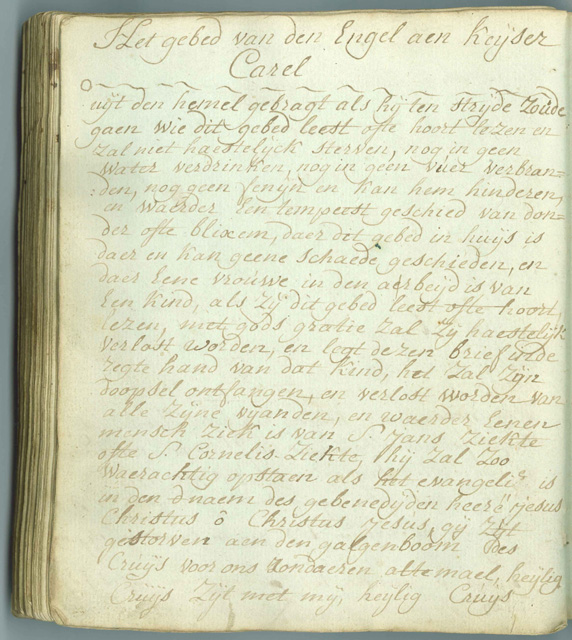 Het gebed van den Engel aen Keyser
Carel
uijt den hemel gebragt als hij ten stryde Zoude
gaen wie dit gebed leest ofte hoort lezen en
zal niet haestelijck sterven, nog in geen
water verdrinken, nog in geen vuer verbran-
:den, nog geen fenijn en kan hem hinderen,
en waerder Een tempeest geschied van don-
der ofte blixem, daer dit gebed in huijs is
daer en kan geene schaede geschieden, en
daer Eene vrouwe in den aerbeyd is van
Een kind, als Zij dit gebed leest ofte hoort
lezen, met gods gratie zal Zij haestelijk
verlost worden, en legt dezen brief in de
regte hand van dat Kind, het Zal Zijn
doopsel ontfangen, en verlost worden van
alle Zijne vijanden, en waerder Eenen
mensch ziek is van S. Jans Ziekte
ofte S. Cornelis Ziekte, hij Zal Zoo
waerachtig opstaen als het evangelie is
in den naem des gebenedyden heere Jesus
Christus ô Christus Jesus gij Zijt
gestorven aen den galgenboom des
Cruijs voor ons Zondaeren altemael, heylig
Cruijs Zijt met mij, heylig Cruijs